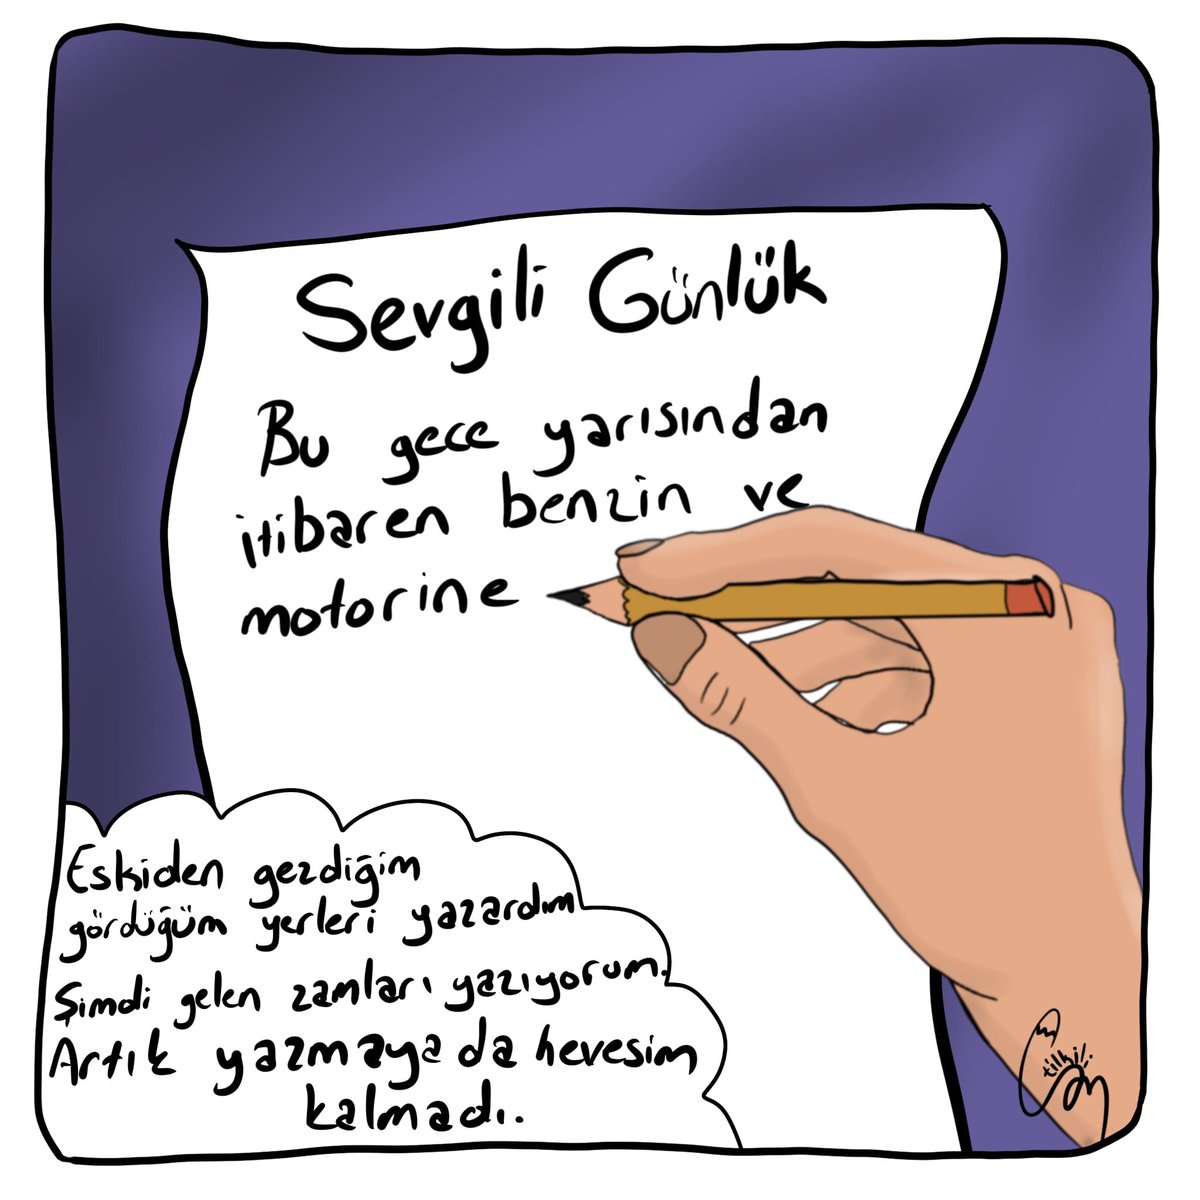 Sevgili Günlük
Bu gece yarısından
itibaren benzin ve
motorine
Eskiden gezdiğim
gördüğüm yerleri yazardım
Şimdi gelen zamları yazıyorum.
Artık yazmaya da hevesim
kalmadı.
tilkili